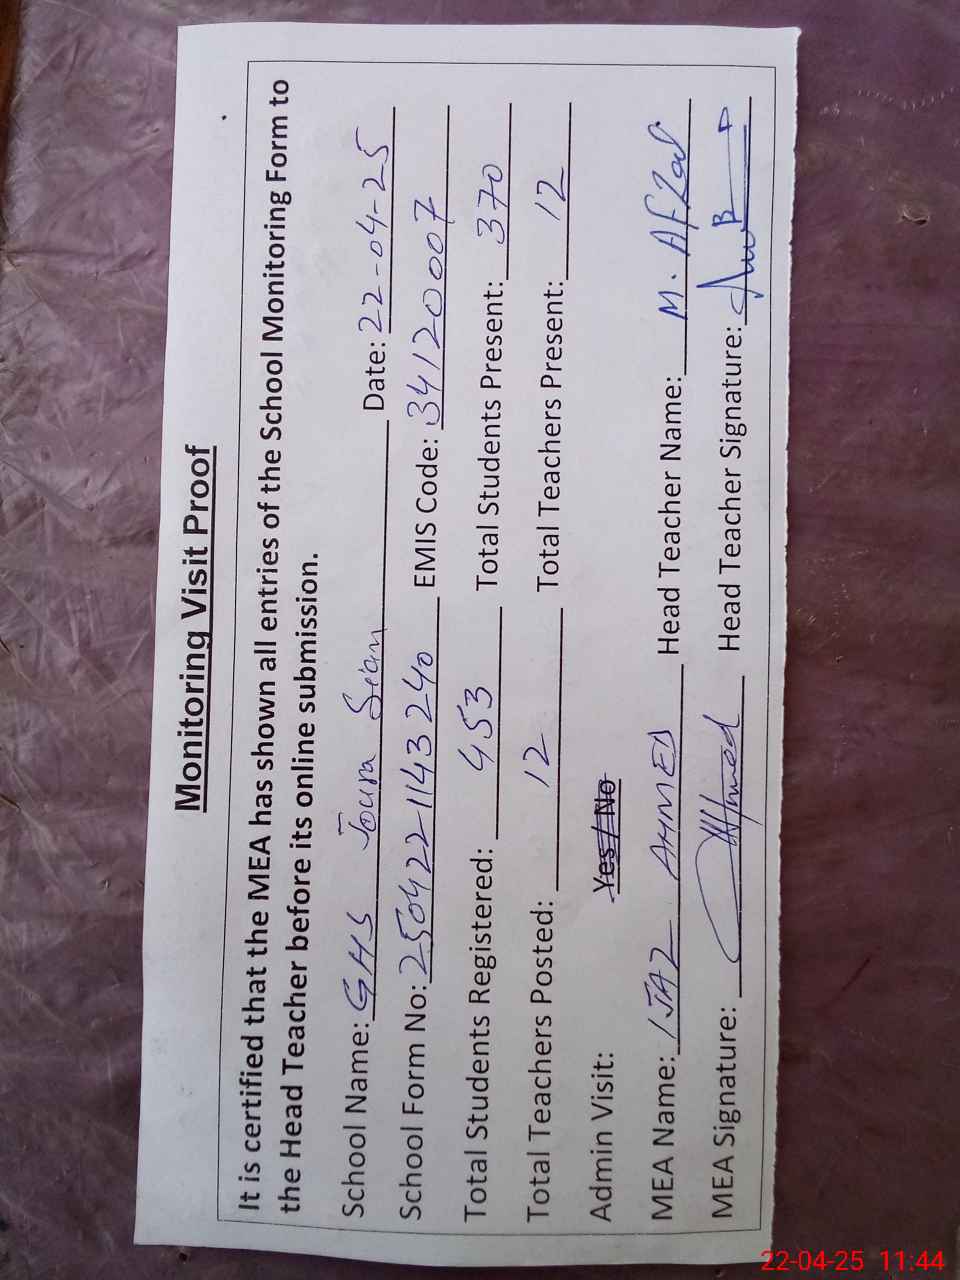 Monitoring Visit Proof
It is certified that the MEA has shown all entries of the School Monitoring Form to
the Head Teacher before its online submission.
School Name: GHS Joura Sian Date: 22-04-25
School Form No: 2504221143240 EMIS Code: 34120007
Total Students Registered: 453 Total Students Present: 370
Total Teachers Posted: 12 Total Teachers Present: 12
Admin Visit: Yes / No
MEA Name: IJAZ AHMED Head Teacher Name: M. Afzal
MEA Signature: Head Teacher Signature:
22-04-25 11:44